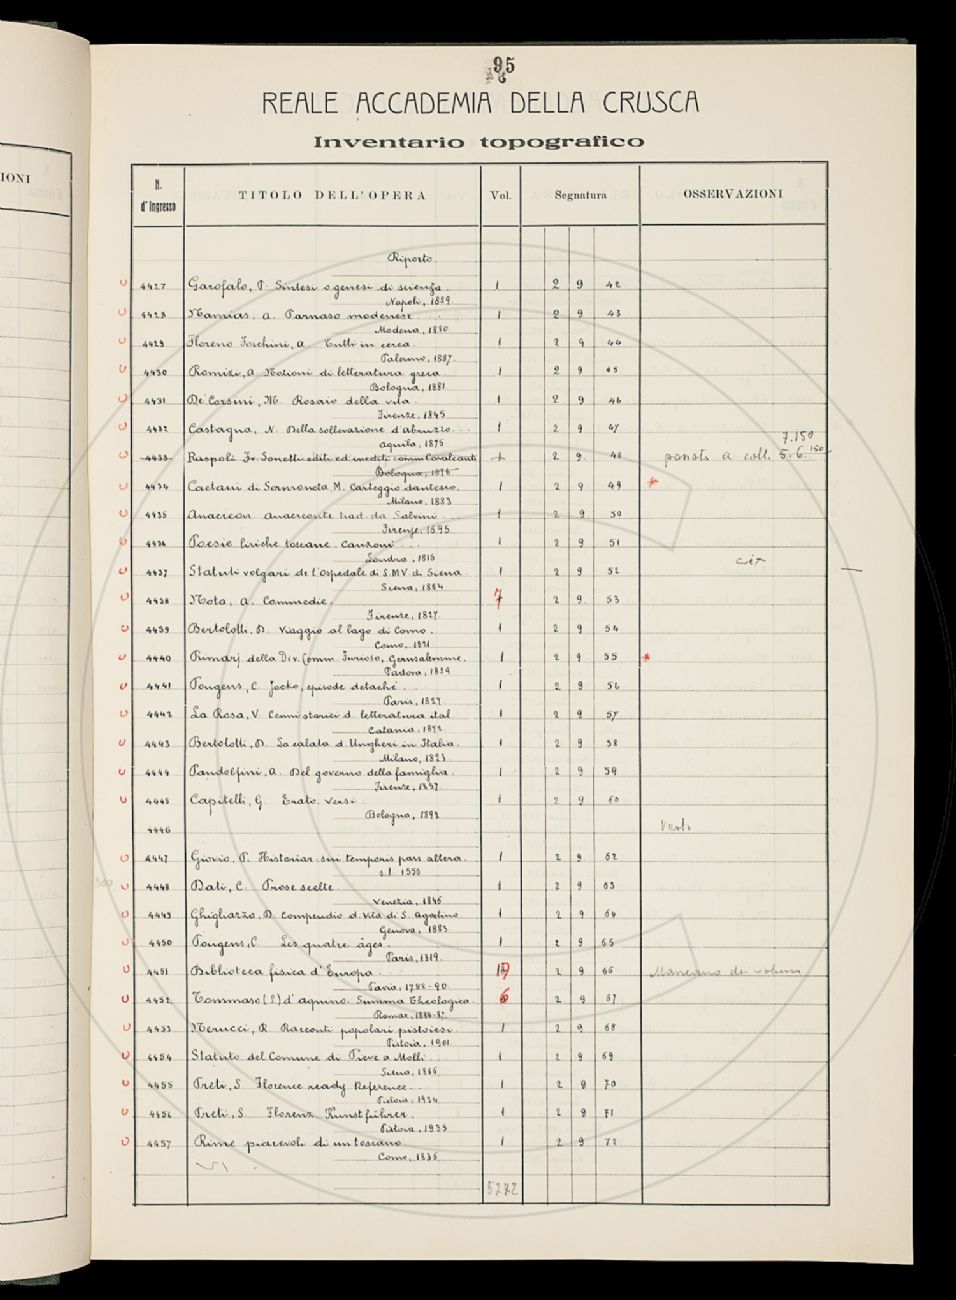 95
REALE ACCADEMIA DELLA CRUSCA
Inventario topografico
IONI
N. d'Ingresso TITOLO DELL'OPERA Vol. Segnatura OSSERVAZIONI
Riporto.
4427 Garofalo, P. Sintesi o genesi di scienza. 1 2 9 42
Napoli, 1889
4428 Namias, A. Parnaso modenese. 1 2 9 43
Modena, 1880
4429 Floreno Foschini, A. Tutti in cerca. 1 2 9 44
Palermo, 1887.
4430 Romizi, A Nozioni di letteratura greca. 1 2 9 45
Bologna, 1881
4431 De Corsini, M. Rosaio della vita. 1 2 9 46
Firenze, 1845
4432 Castagna, N. Della sollevazione d'Abruzzo... 1 2 9 47
Aquila, 1875
7.150
4433 Raspoli Fr. Sonetti editi ed inediti comm Cavalcanti 1 2 9. 48 a coll. 5.6.150
Bologna, 1876
4434 Caetani di Sermoneta, M. Carteggio dantesco. 1 2 9 49 *
Milano, 1883
4435 Anacreon Anacreonte trad. da Salvini ... 1 2 9 50
Firenze, 1695
4436 Poesie liriche toscane. Canzoni ... 1 2 9 51
Londra, 1816
cit
4437 Statuti volgari de l'Ospedale di S.M.V. di Siena. 1 2 9 52
Siena, 1864
4438 Nota, A. Commedie. 7 2 9. 53
Firenze, 1827.
4439 Bertolotti, D. Viaggio al lago di Como. 1 2 9 54
Como, 1821
4440 Rimarj della Div. Comm. Furioso, Gerusalemme. 1 2 9 55 *
Padova, 1829
4441 Pougens, C Jocko, episode detaché .. 1 2 9 56
Paris, 1827.
4442 La Rosa, V. Cenni storici d. letteratura ital 1 2 9 57
Catania, 1872
4443 Bertolotti, D. La calata d. Ungheri in Italia. 1 2 9 58
Milano, 1823
4444 Pandolfini, A. Del governo della famiglia. 1 2 9 59
Firenze, 1837.
4445 Capitelli, G. Erato. Versi 1 2 9 60
Bologna, 1892
4446 Vuoto
4447 Giovio, P. Historiar. sui temporis pars altera. 1 2 9. 62
s.l. 1555
4448 Dati, C. Prose scelte. 1 2 9 63
Venezia, 1846
4449 Ghigliazzo, D. Compendio d. vita di S. Agostino 1 2 9 64
Genova, 1883
4450 Pougens, C Les quatre âges. 1 2 9 65
Paris, 1819.
4451 Biblioteca fisica d'Europa. 2 9 66 Mancano dei volumi
Pavia, 1788-90
4452 Tommaso (S.) d'Aquino. Summa Theologica. 6 2 9 67
Romae, 1886-87.
4453 Nerucci, G. Racconti popolari pistoiesi 1 2 9 68
Pistoia, 1901
4454 Statuto del Comune di Pieve a Molli 1 2 9 69
Siena, 1866
4455 Preti, S. Florence ready Reference 1 2 9 70
Pistoia, 1934
4456 Preti, S. Florenz Kunstführer. 1 2 9 71
Pistoia, 1935
4457 Rime piacevoli di un toscano. 1 2 9 72
Como, 1836
5272